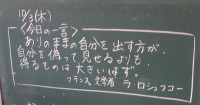 10/3(木)
〈今日の一言〉
ありのままの自分を出す方が、
自分を偽って見せるよりも、
得るものは大きいはず。
フランス 文学者 ラ・ロシュフコー